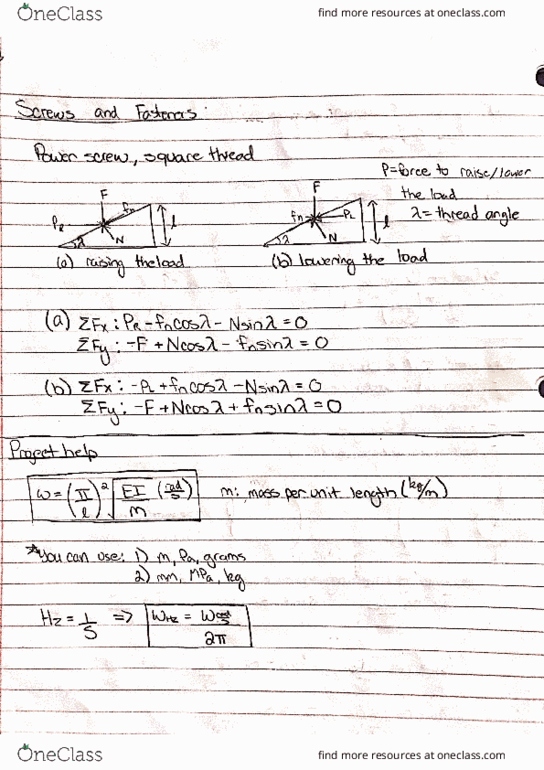 OneClass find more resources at oneclass.com
Screws and Fasteners
Power screw, square thread
P=force to raise/lower
the load
λ = thread angle
F
fn
PR
N
λ
l
F
fn
PL
N
λ
l
(a) raising the load
(b) lowering the load
(a) ΣFx: PR - fncosλ - Nsinλ = 0
ΣFy: -F + Ncosλ - fnsinλ = 0
(b) ΣFx: -PL + fncosλ - Nsinλ = 0
ΣFy: -F + Ncosλ + fnsinλ = 0
Project help
ω = (π/l)² √(EI/m) (rad/s) m: mass per unit length (kg/m)
*You can use: 1) m, Pa, grams
2) mm, MPa, kg
Hz = 1/s => ωHz = ωrad/s / 2π
OneClass find more resources at oneclass.com